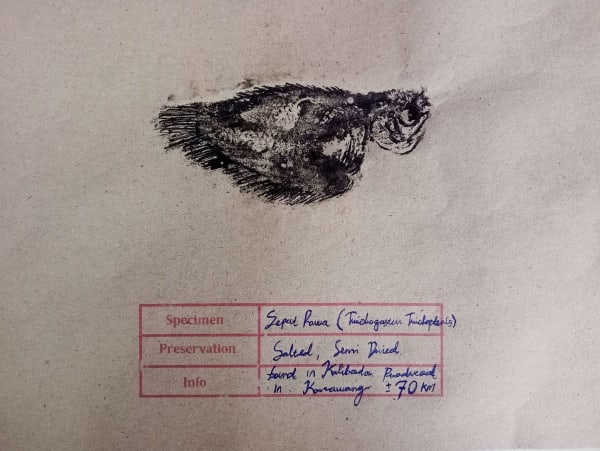 Specimen Sepat Rawa (Trichogaster Trichopterus)
Preservation Salted, Semi Dried.
Info found in Kalibata, Produced
in Karawang ± 70 KM